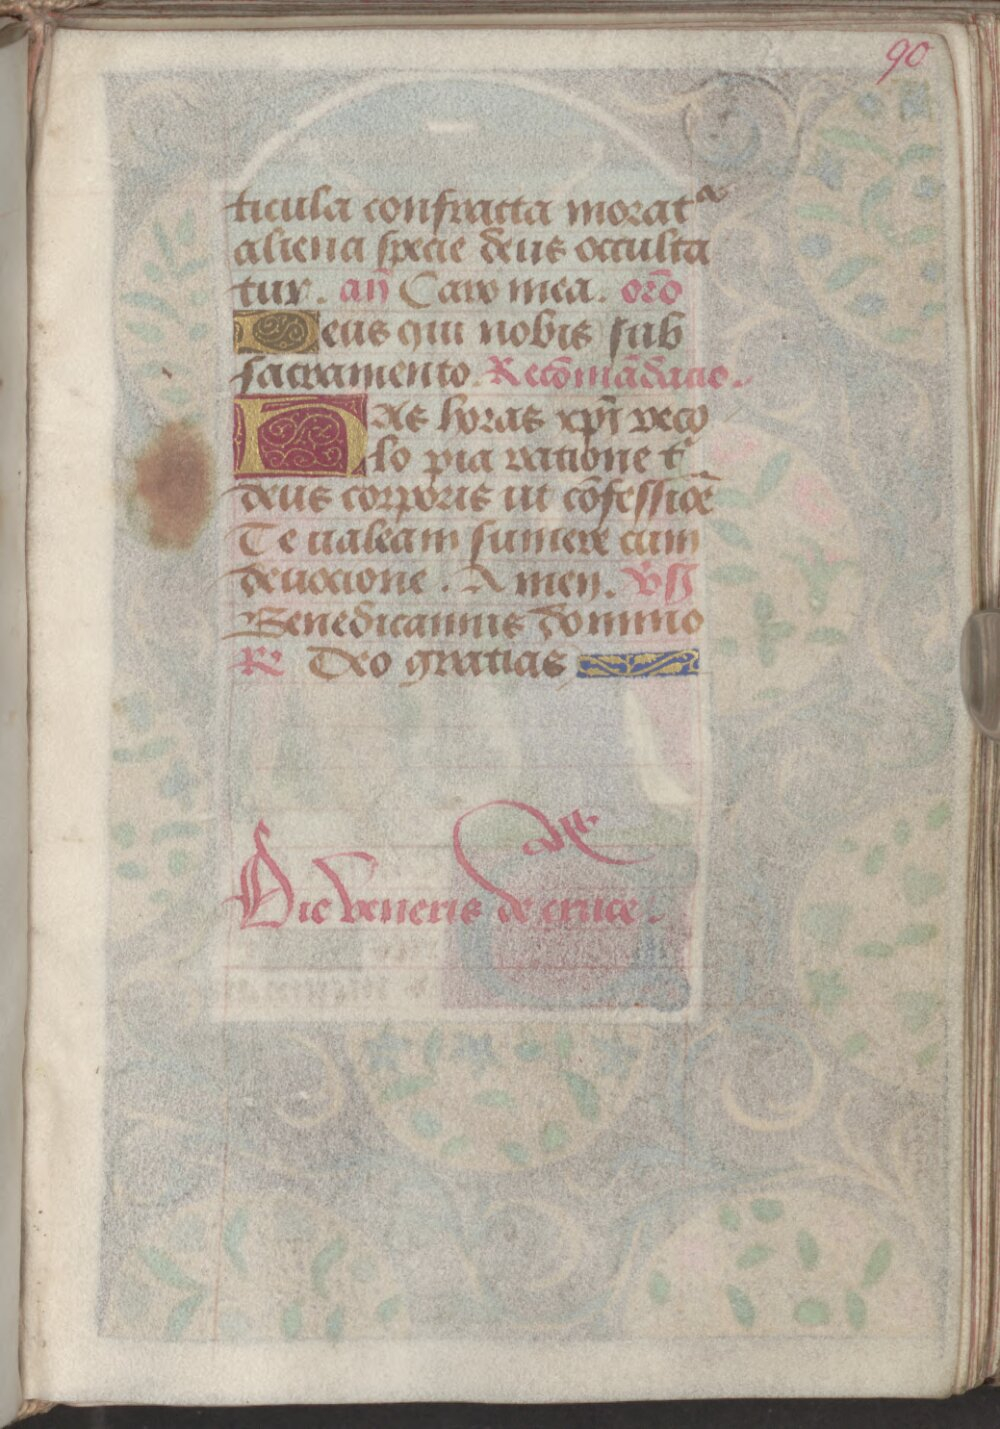 90
ticula confracta moratᵃ
aliena specie deus occulta
tur. añ Caro mea. orõ
Deus qui nobis sub
sacramento. Recõmãdacio.
HAs horas xp̃i reco
lo pia ratione t̃
deus corporis ut cõfessiõe
Te ualeam sumere cum
deuocione. Amen. v̾s
Benedicamus domino
R̾ Deo gratias
Die veneris de cruce.